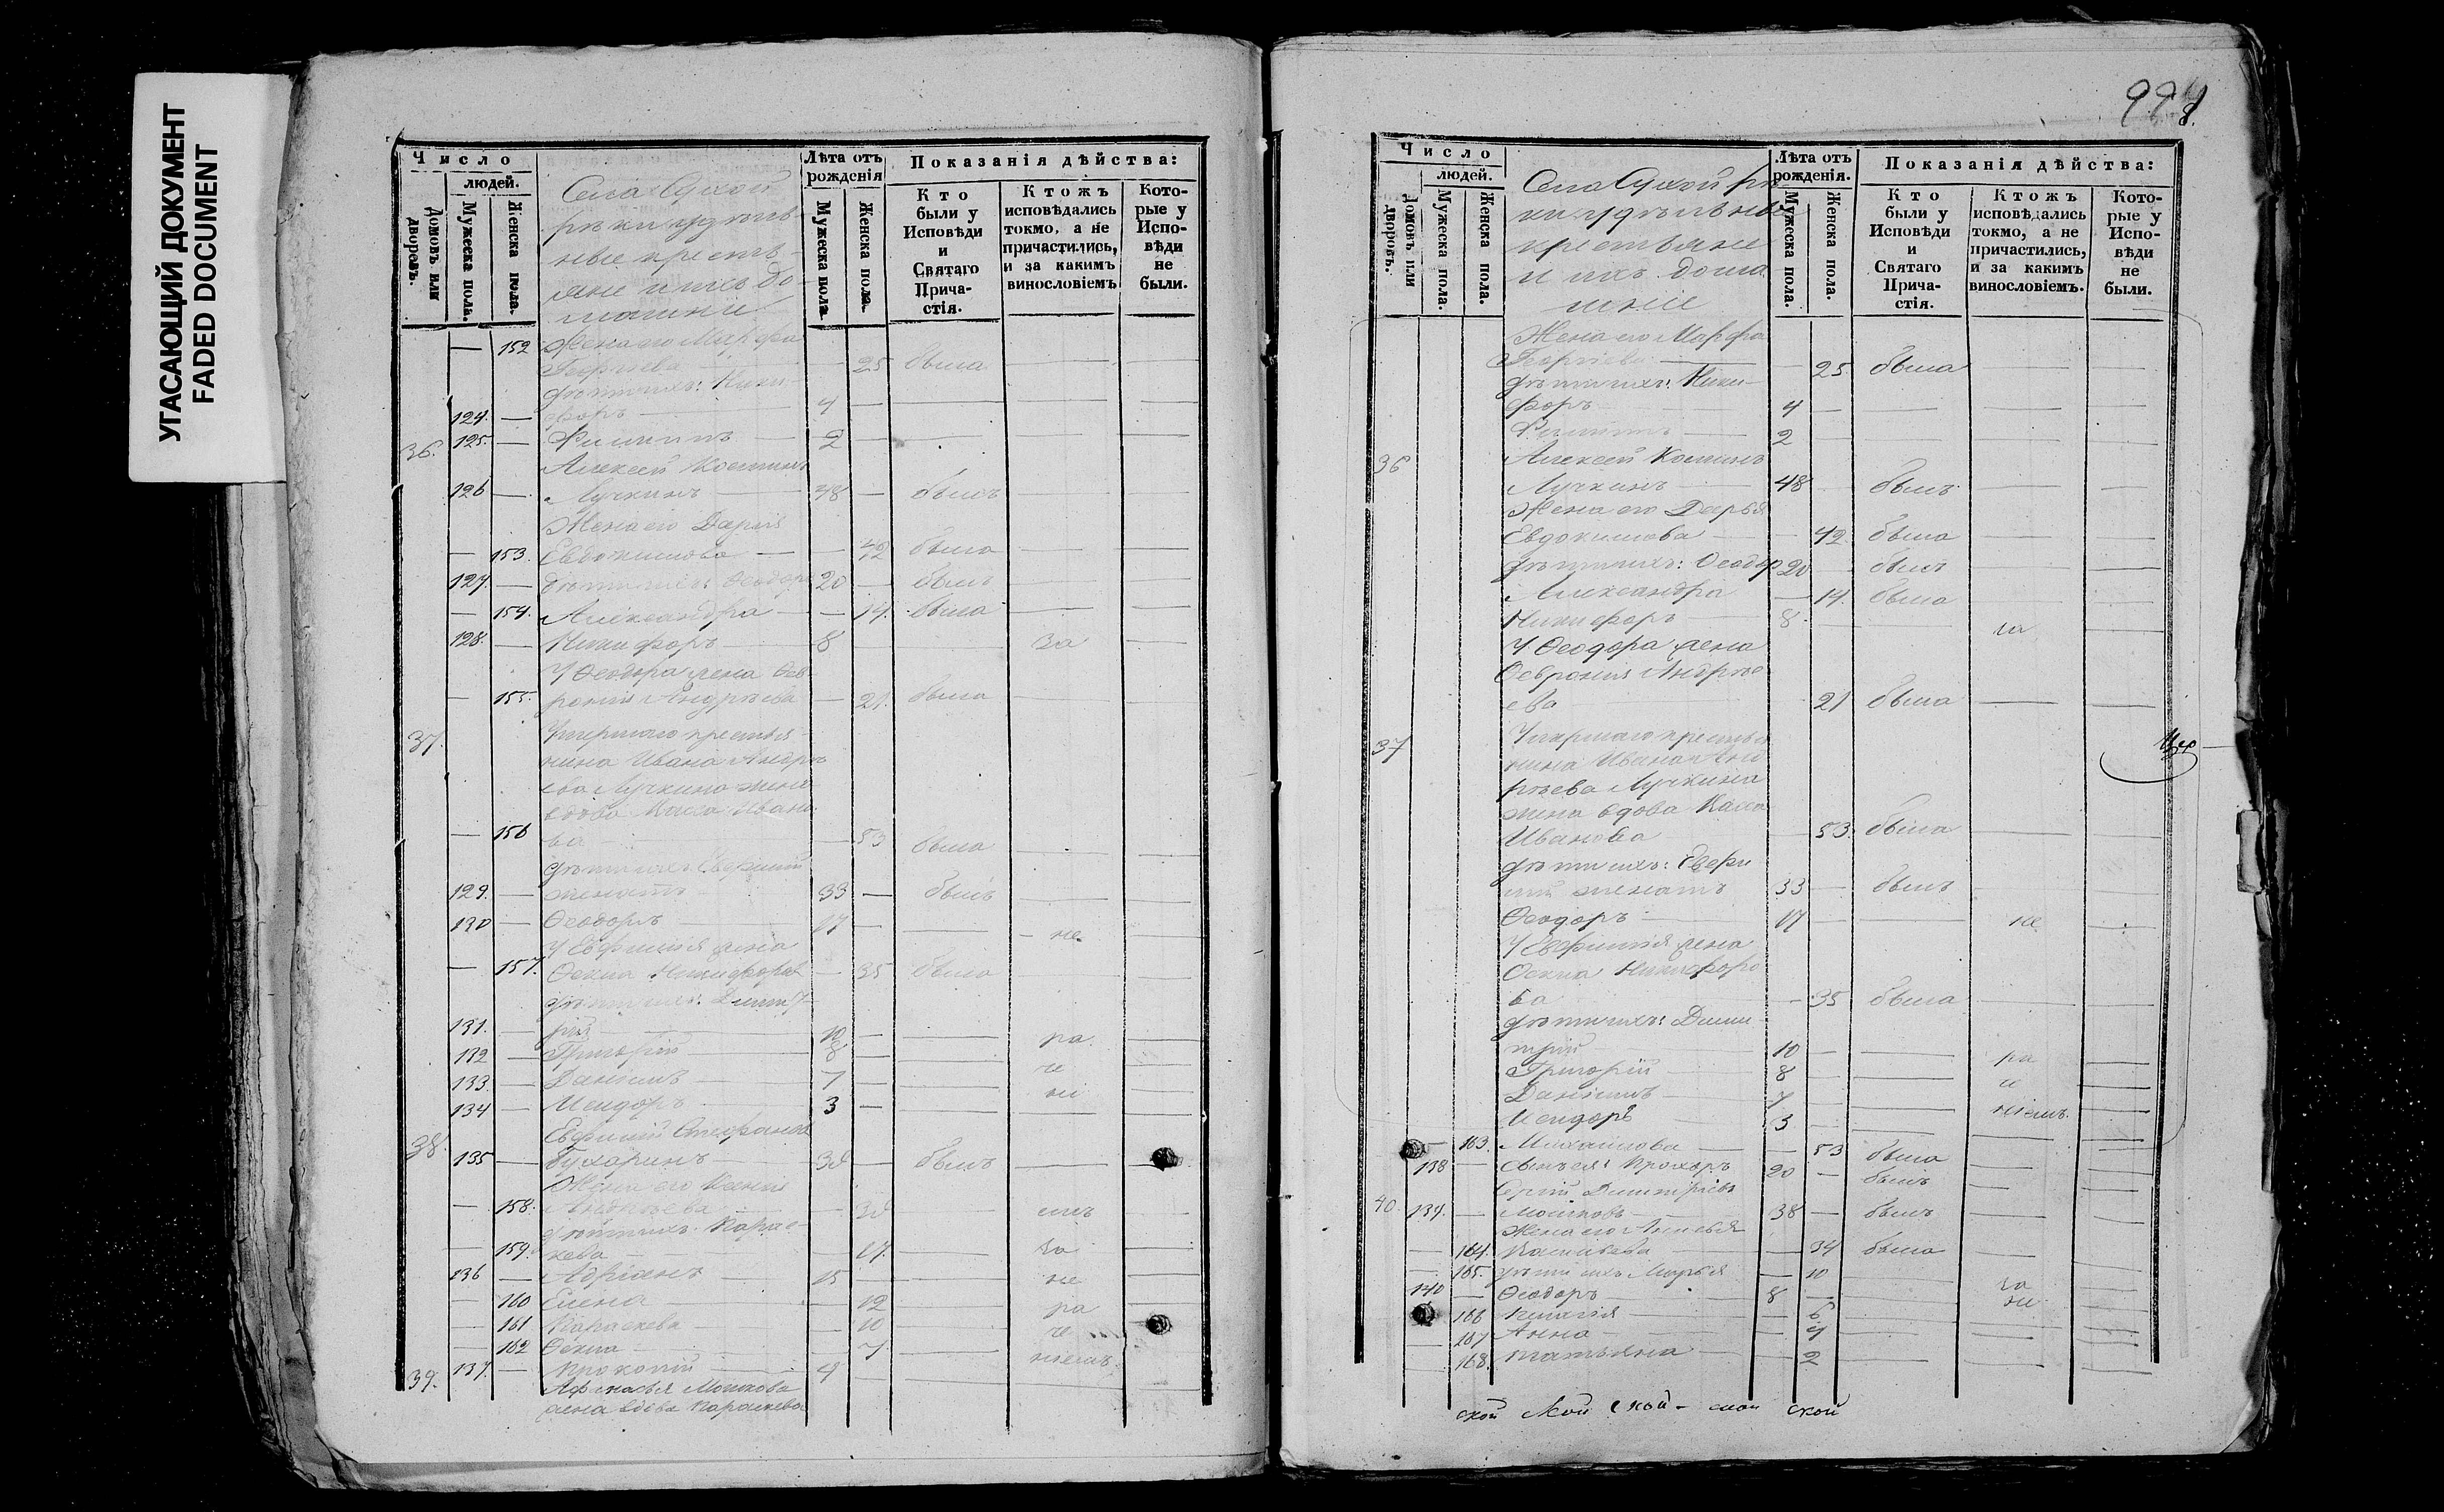 УГАСАЮЩИЙ ДОКУМЕНТ
FADED DOCUMENT
Число
людей.
Домовъ или дворовъ.
Мужеска пола.
Женска пола.
Села Сухой
рѣки удѣль-
ные кресть-
яне и ихъ до-
машніе
Лѣта отъ рожденія
Мужеска пола
Женска пола.
Показанія дѣйства:
Кто были у Исповѣди и Святаго Прича- стія.
Ктожъ исповѣдались токмо, а не причастились, и за какимъ винословіемъ
Кото- рые у Испо- вѣди не были.
152 Жена его Марфа
Георгіева — 25 была
дѣти ихъ: Ники-
124. — форъ 4 —
36. 125. — Филиппъ 2 —
Алексей Косминъ
126 — Лучкинъ 48 — былъ
Жена его Дарія
— 153. Евдокимова — 42 была
127. — дѣти ихъ: Ѳеодоръ 20 — былъ
— 154. Александра — 14. была
128. — Никифоръ 8 за
У Ѳеодора жена Ѳев-
— 155. ронія Андрѣева — 21. была
37. Умершаго крестья-
нина Ивана Андрѣ-
ева Лучкина жена
вдова Васса Ивано
— 156 ва — 53 была
дѣти ихъ: Евфимій
129. — женатъ 33 — былъ
130 — Ѳеодоръ 17 — не
У Евфимія жена
— 157. Ѳекла Никифорова — 35 была
дѣти ихъ: Димит-
131. — рій 10 — ра
132 — Григорій 8 — че
133. — Даніилъ 7 — ні
134 — Исидоръ 3 —
38. Евфимій Стефановъ
135 — Бухаринъ 38 — былъ
Жена его Ксенія
— 158. 38 емъ
дѣти ихъ: Парас-
— 159. кева — 17. за
136 — Адріанъ 15 не
— 160 Елена — 12 ра
— 161 Параскева — 10 че
— 162 Ѳекла — 7
39. 137. — Прокопій 4 ніемъ
Афанасья Мошкова
жена вдова Параскева
998.
Число
людей.
Домовъ или дворовъ.
Мужеска пола.
Женска пола.
Села Сухой рѣ-
ки удѣльные
крестьяне
и ихъ дома
шніе
Лѣта отъ рожденія.
Мужеска пола.
Женска пола.
Показанія дѣйства:
Кто были у Исповѣди и Святаго Прича- стія.
Ктожъ исповѣдались токмо, а не причастились, и за какимъ винословіемъ.
Кото- рые у Испо- вѣди не были.
Жена его Марфа
Георгіева — 25. была
дѣти ихъ: Ники-
форъ 4 —
Филиппъ 2 —
36 Алексей Косминъ
Лучкинъ 48 былъ
Жена его Дарья
Евдокимова — 42. была
дѣти ихъ: Ѳеодоръ 20 былъ
Александра — 14. была
Никифоръ 8. за
У Ѳеодора жена
Ѳевронія Андрѣе
ева 21 была
37 Умершаго крестья
нина Ивана Анд
рѣева Лучкина
жена вдова Васса
Иванова — 53. была
дѣти ихъ: Евфи
мій женатъ 33 — былъ
Ѳеодоръ 17 — не
У Евфимія жена
Ѳекла Никифоро
ва — 35 была
дѣти ихъ: Дими-
трій 10 — ра
Григорій 8 — че
Даніилъ 7 — ніемъ.
Исидоръ 3 —
— 163. Михайлова — 53 была
138 — сынъ ея: Прохоръ 20 — былъ
Сергій Димитріевъ
40. 139. — Мошковъ 38 — былъ
Жена его
— 164. Васильева — 34 была
— 165. дѣти ихъ Марья — 10
140 — Ѳеодоръ 8 — за
166 Келагія — 6 не
167 Анна — 4
168. Татьяна — 2
ской ской ской — ской ской